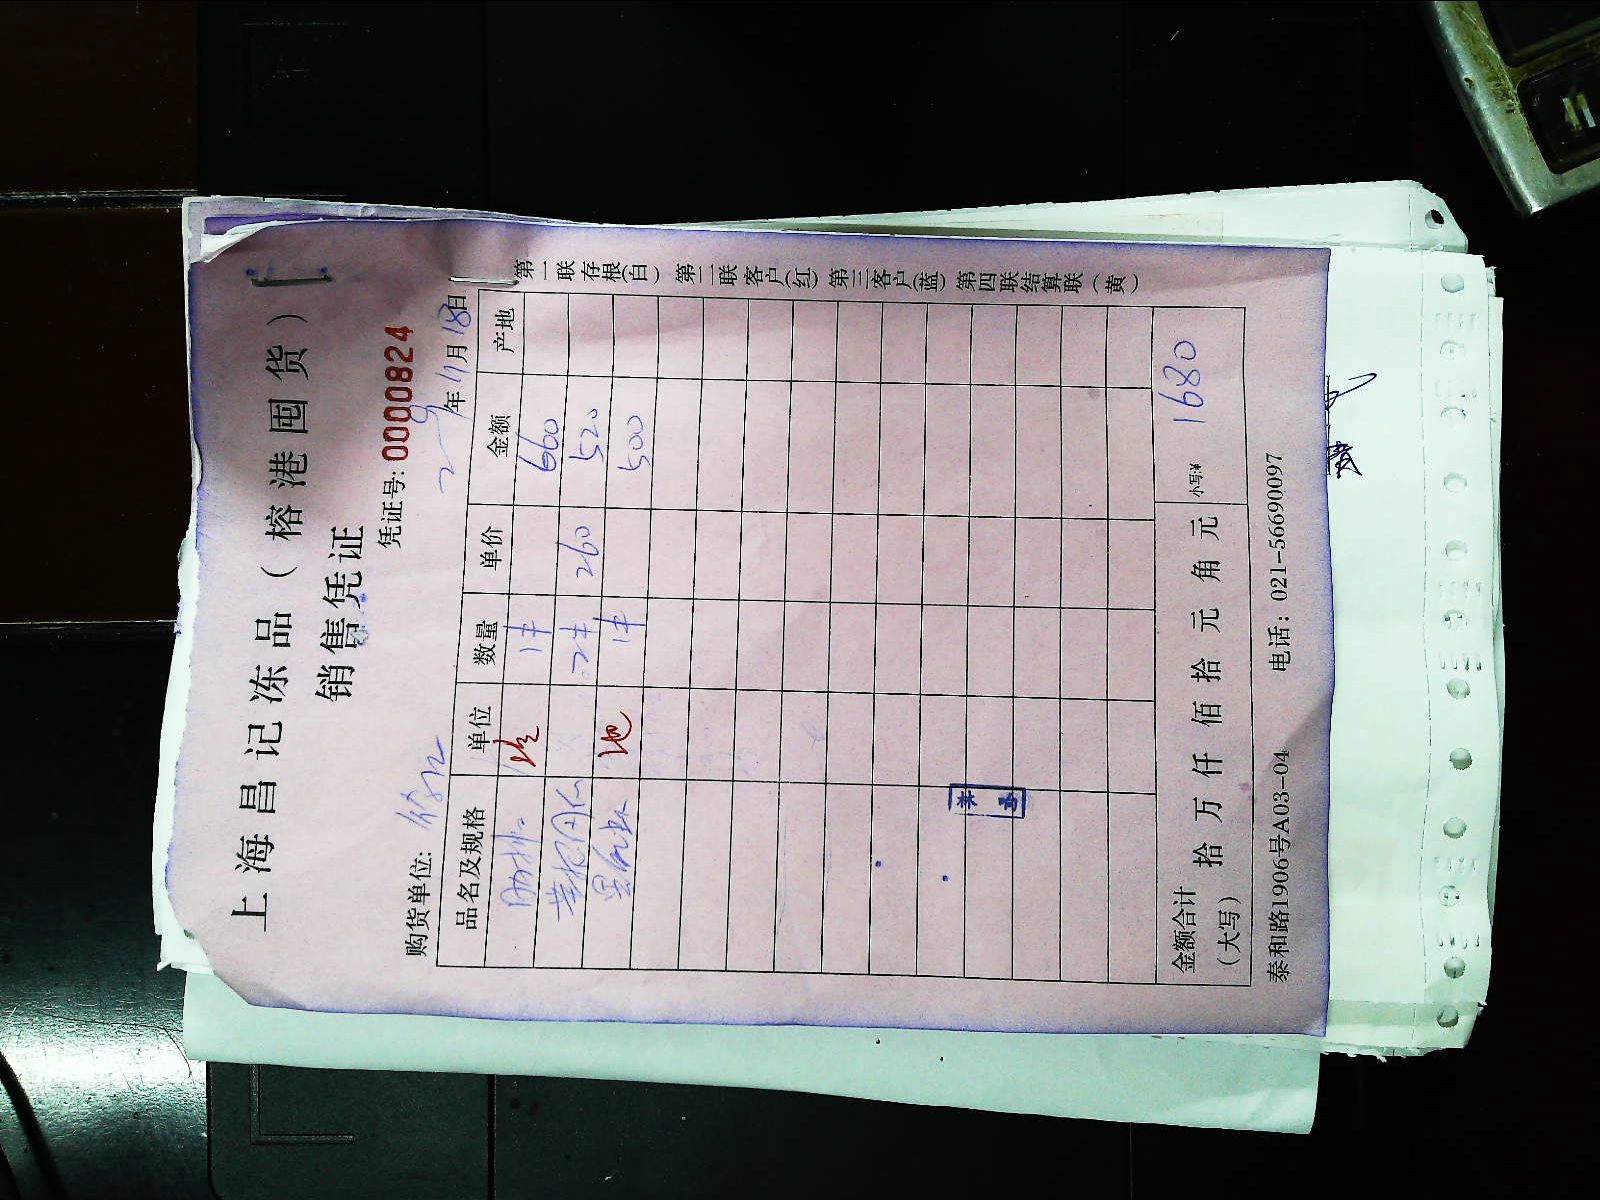 上海昌记冻品（榕港囤货）
销售凭证
凭证号: 0000824
购货单位:
年 11月 18日
品名及规格 单位 数量 单价 金额 产地
肋排 1件 660
2件 260 520
1件 500
金额合计（大写） 拾 万 仟 佰 拾 元 角 元 小写:¥ 1680
泰和路1906号A03-04 电话: 021-56690097
第一联存根(白) 第二联客户(红) 第三客户(蓝) 第四联结算联（黄）